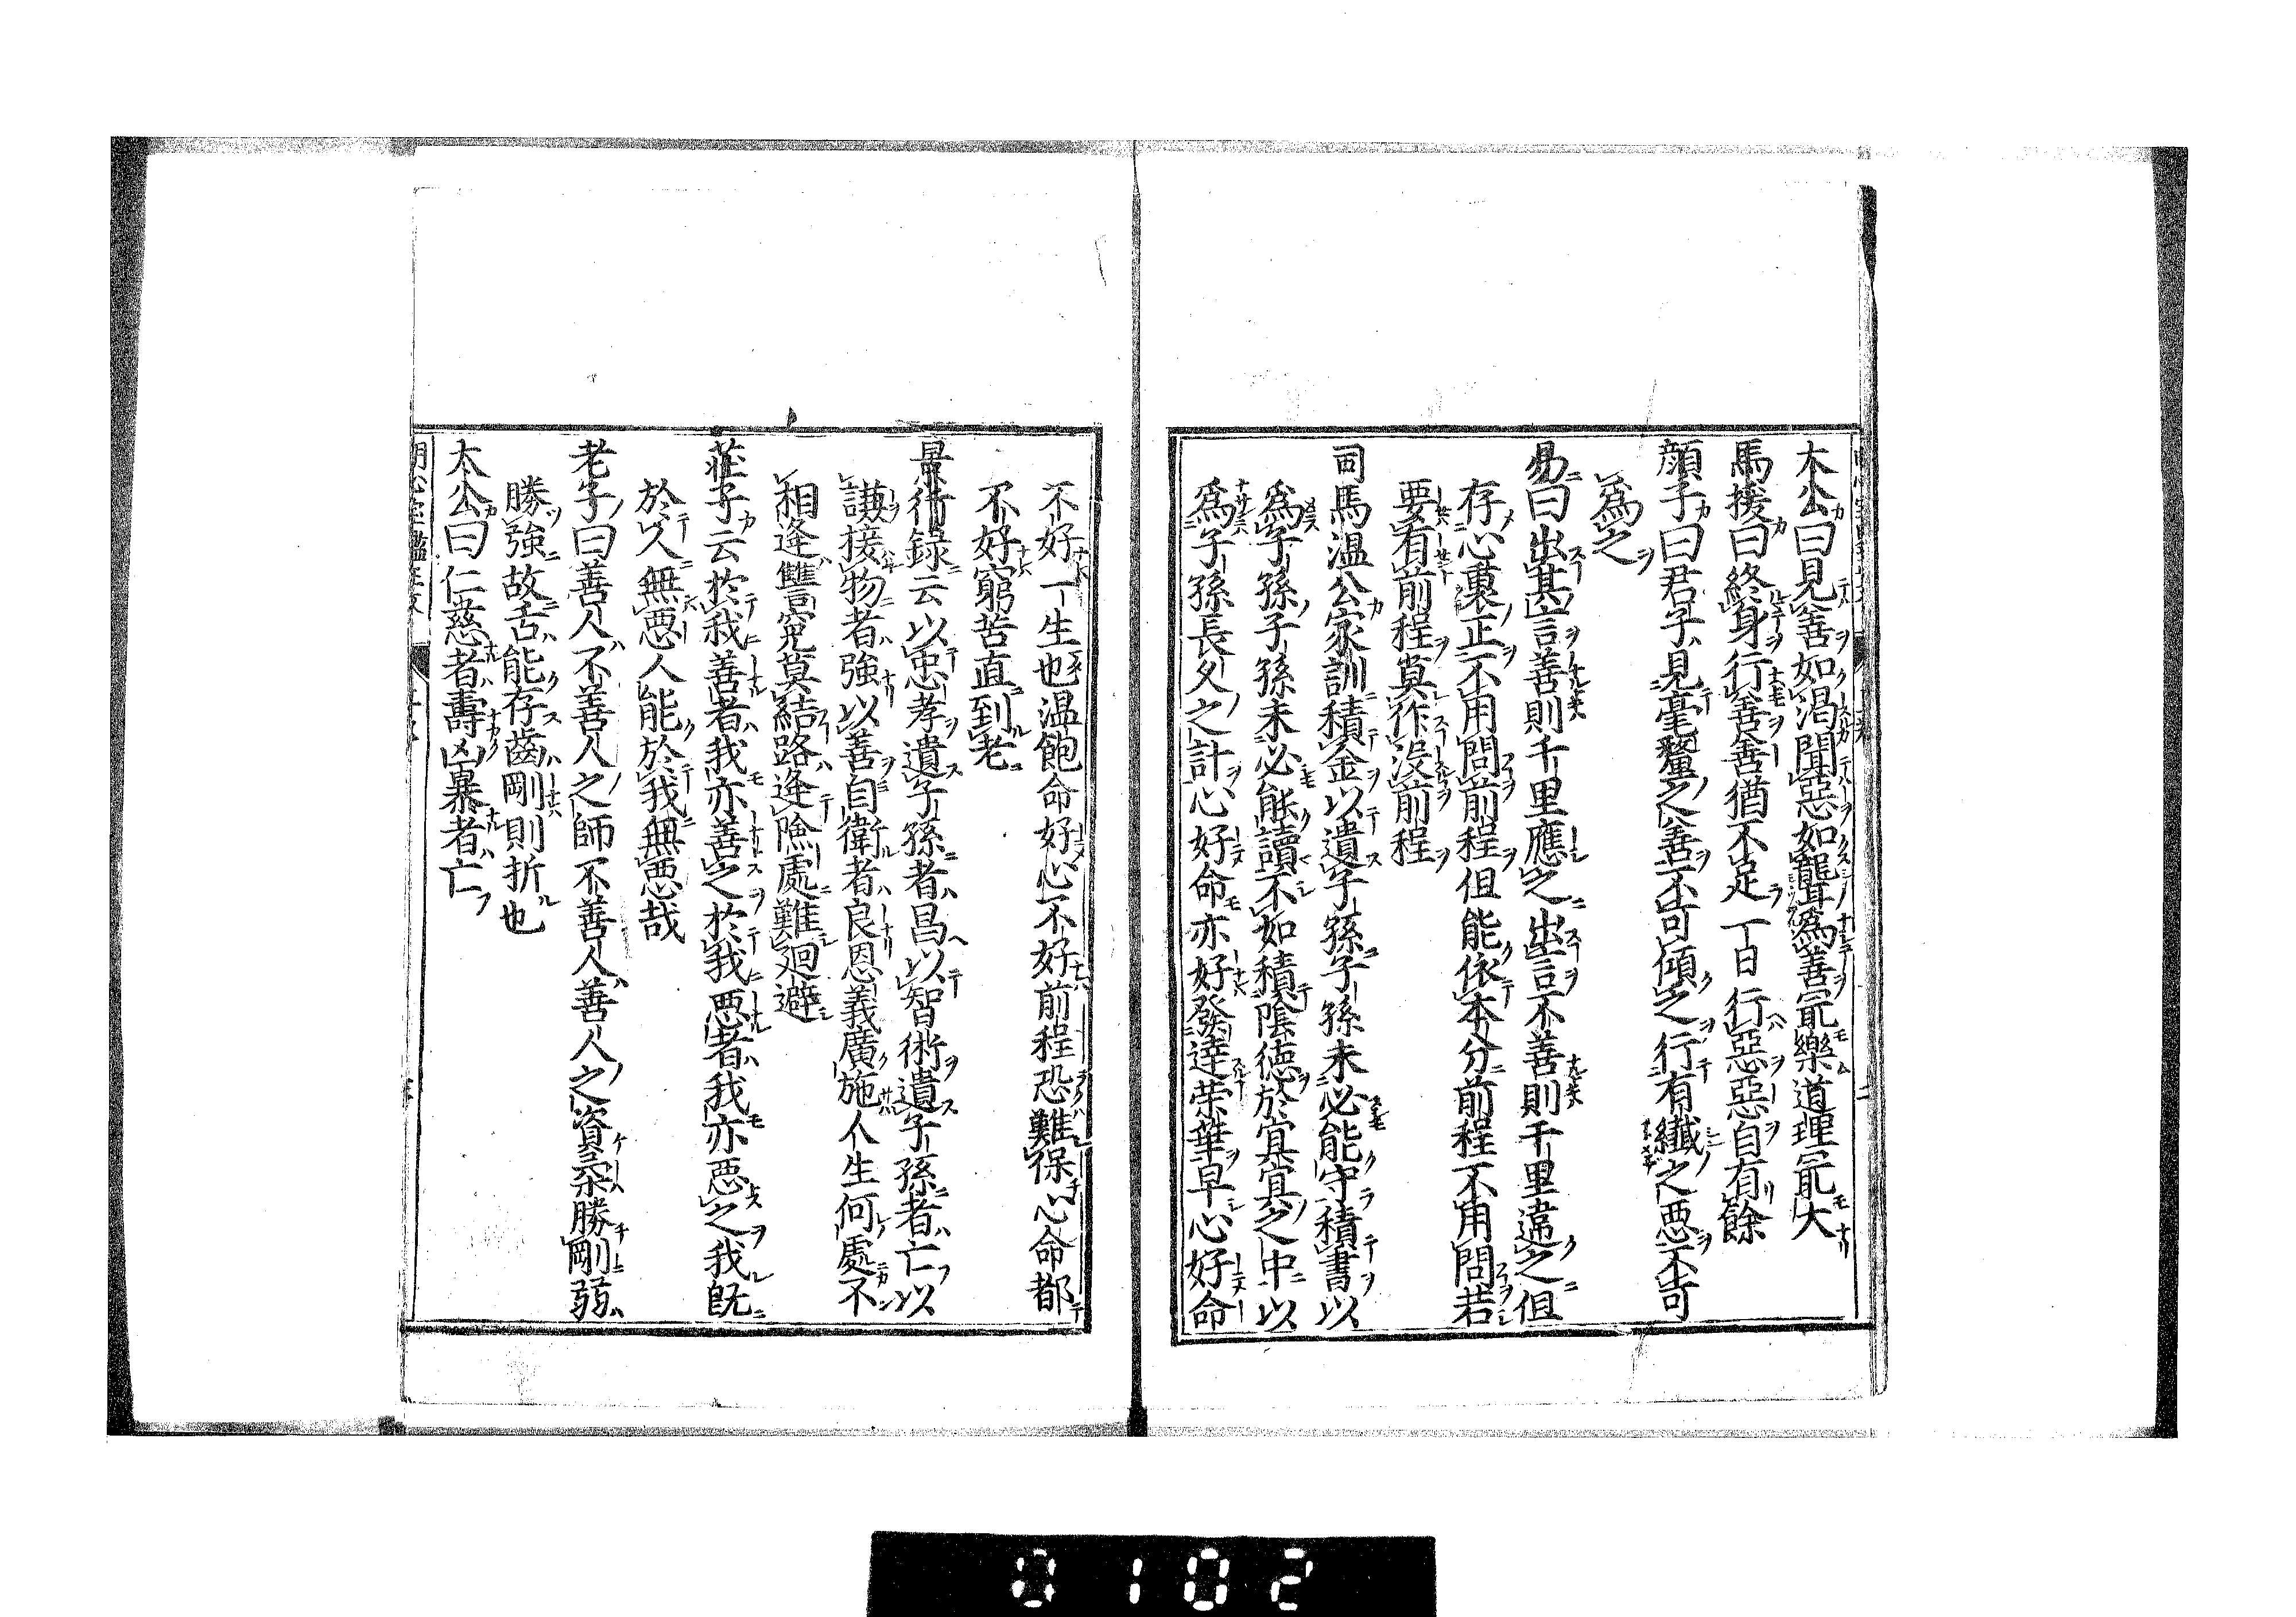 太公曰見善如渴聞惡如聾爲善冣樂道理冣大
馬援曰終身行善善猶不足一日行惡惡自有餘
顔子曰君子見毫釐之善不可傾之行有纖之悪不可
爲之
易曰出其言善則千里應之出言不善則千里違之但
存心裏正不用問前程但能依本分前程不用問若
要有前程莫作没前程
司馬温公家訓積金以遺子孫子孫未必能守積書以
爲子孫子孫未必能讀不如積陰徳於冥冥之中以
爲子孫長久之計心好命亦好發達荣華早心好命
不好一生也温飽命好心不好前程恐難保心命都
不好窮苦直到老
景行録云以忠孝遺子孫者昌以智術遺子孫者亡以
謙接物者強以善自衛者良恩義廣施人生何處不
相逢讐寃莫結路逢險處難廻避
莊子云於我善者我亦善之於我悪者我亦悪之我既
於人無悪人能於我無悪哉
老子曰善人不善人之師不善人善人之資柔勝剛弱
勝強故舌能存齒剛則折也
太公曰仁慈者壽凶暴者亡
0102